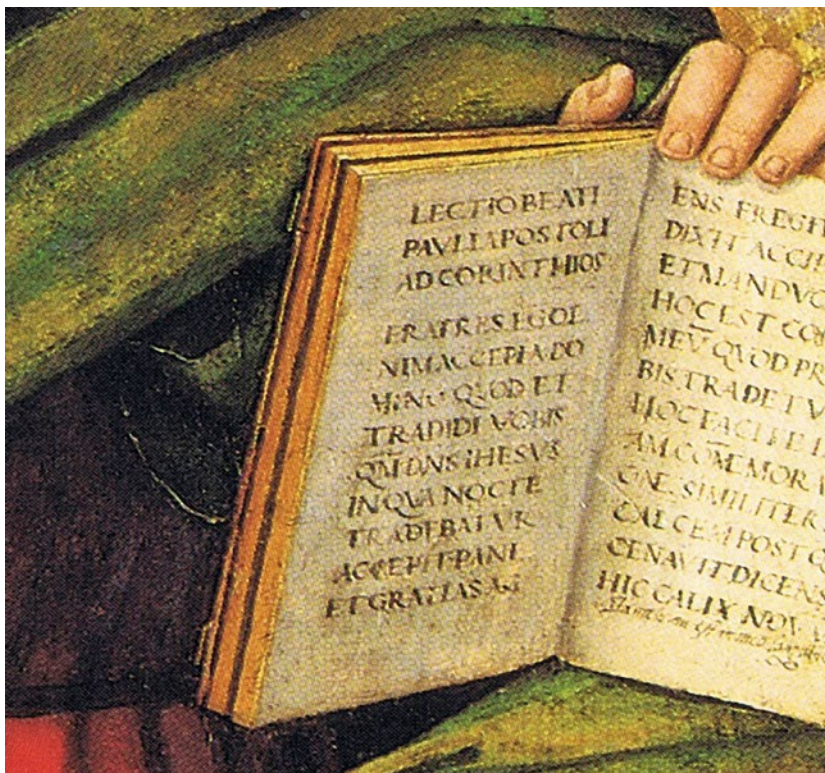 LECTIO BEATI
PAVLI APOSTOLI
AD CORINTHIOS
FRATRES EGO E
NIM ACCEPI A DO
MINO QUOD ET
TRADIDI VOBIS
QM̄ DNS IHESVS
IN QVA NOCTE
TRADEBATVR
ACCEPIT PANE
ET GRATIAS AG
ENS FREGIT
DIXIT ACCIP
ET MANDVC
HOC EST COR
MEV̄ QVOD PR
BIS TRADETV
HOC FACITE I
AM COM̄EMORA
ONE. SIMILITER
CALCEM POST Q
CENAVIT DICENS
HIC CALIX NOV